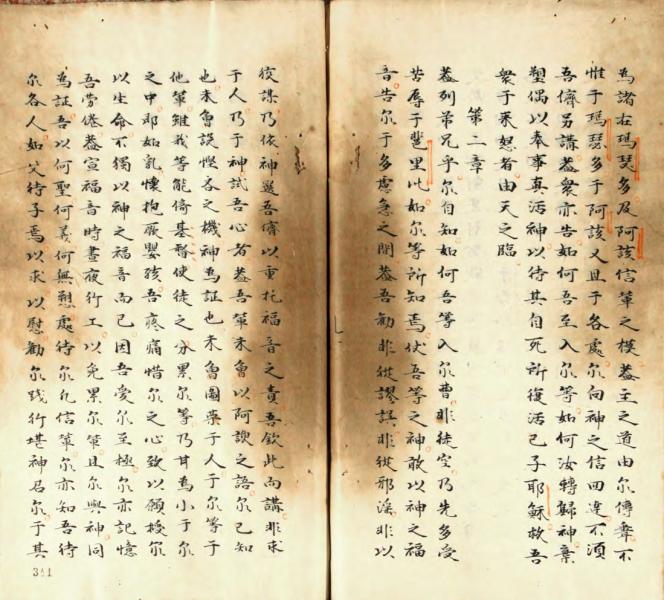 為諸在瑪瑟多及阿該信軰之模葢主之道由尔傳奔不
惟于瑪瑟多于阿該又且于各處尔向神之信四達不須
吾儕另講葢衆亦告如何吾至入尔等如何汝轉歸神棄
塑偶以奉事真活神以待其自死所復活己子耶穌救吾
衆于来怒者由天之臨
第二章
葢列弟兄乎尔自知如何吾等入尔曹非徒空乃先多受
苦辱于蜚里比如尔等所知焉伏吾等之神敢以神之福
音告尔于多慮急之間葢吾勸非從謬誤非從邪淫非以
狡謀乃依神選吾儕以重托福音之責吾欽此而講非求
于人乃于神試吾心者葢吾軰未曾以阿諛之語尔已知
也未曾設慳吝之機神為証也未曾圖榮于人于尔等于
他軰雖我等能倚基督使徒之分累尔等乃甘為小于尔
之中即如乳懷抱厥嬰孩吾疼痛惜尔之心致以願授尔
以生命不獨以神之福音而已因吾愛尔至極尔亦記憶
吾劳倦葢宣福音時晝夜行工以免累尔軰且尔與神同
為証吾以何聖何義何無愆處待尔凡信軰尔亦知吾待
尔各人如父待子焉以求以慰勸尔踐行堪神君尔于其
341